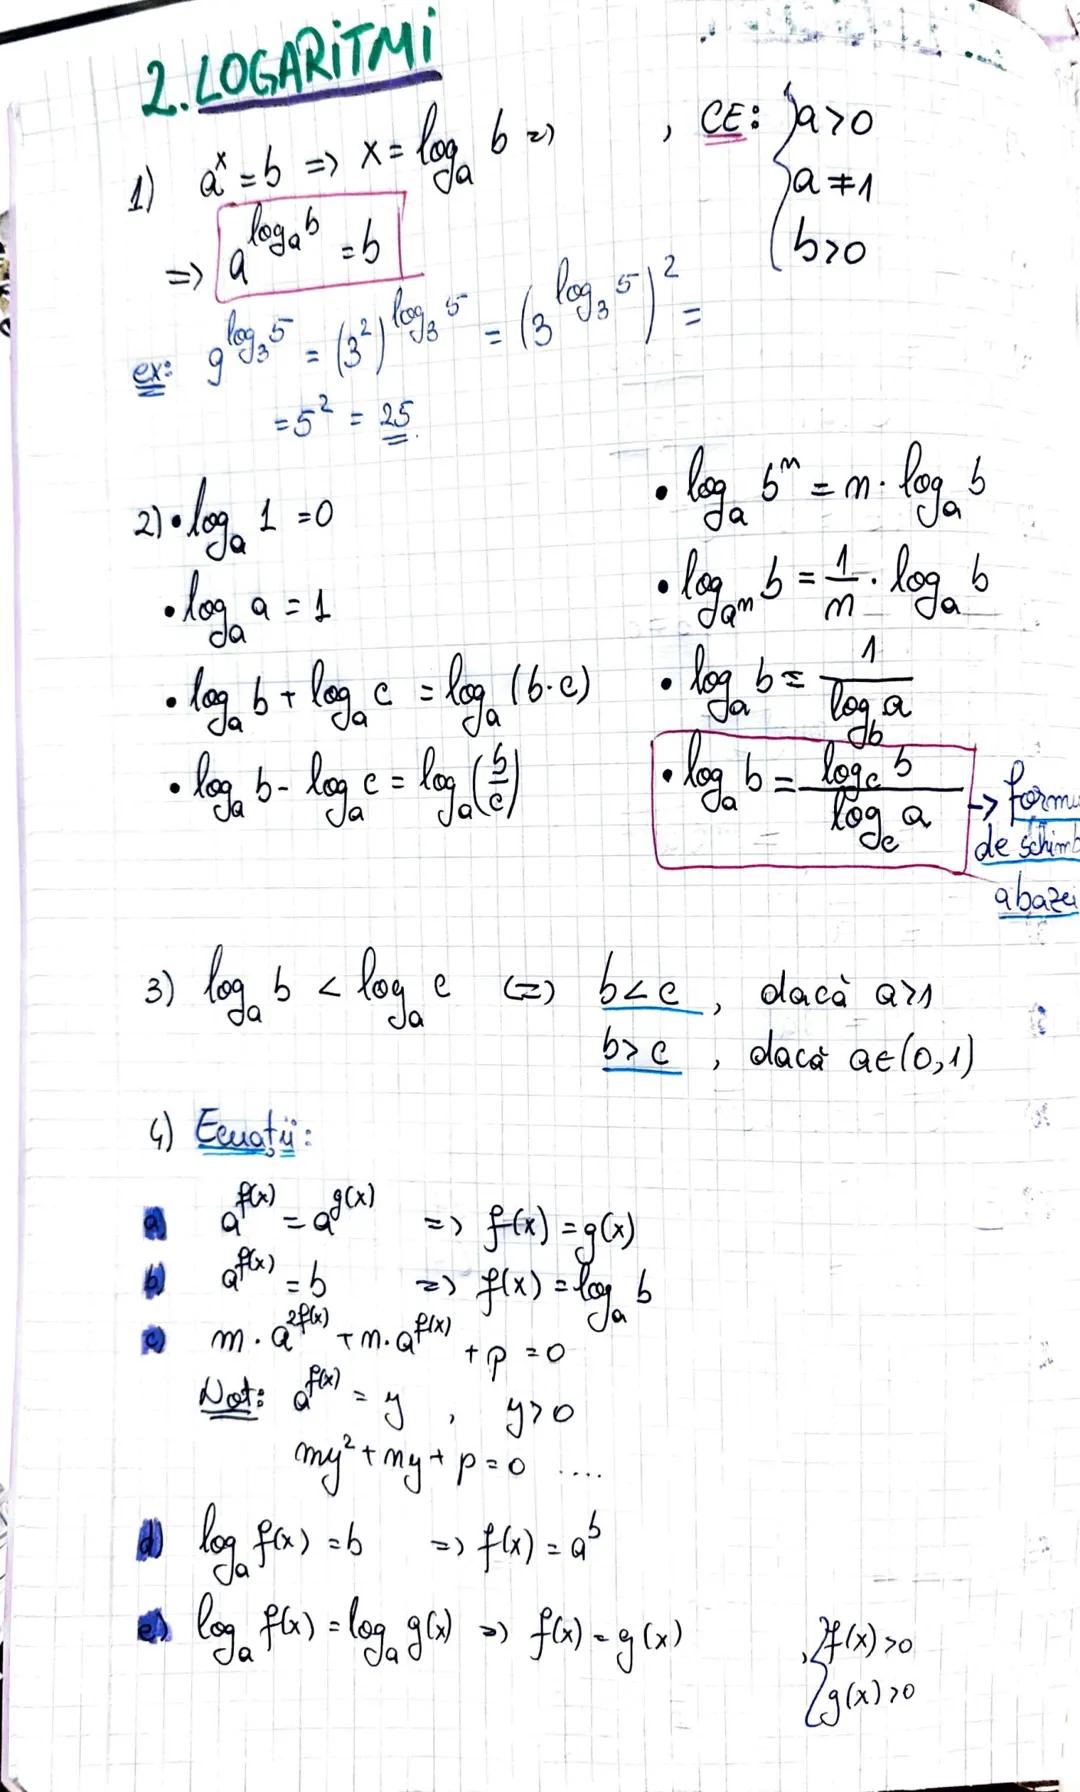 2. LOGARITMI
1) a^x = b => x = log_a b =>   , CE: { a>0
a≠1
b>0
=> a^(log_a b) = b
ex: 9^(log_3 5) = (3^2)^(log_3 5) = (3^(log_3 5))^2 =
= 5^2 = 25.
2) • log_a 1 = 0
• log_a a = 1
• log_a b + log_a c = log_a (b·c)
• log_a b - log_a c = log_a (b/c)
• log_a b^m = m · log_a b
• log_(a^m) b = 1/m · log_a b
• log_a b = 1/(log_b a)
• log_a b = (log_c b)/(log_c a) -> formu
de schimb
a bazei
3) log_a b < log_a c <=> b<c , dacă a>1
b>c , dacă a∈(0,1)
4) Ecuații:
a) a^(f(x)) = a^(g(x)) => f(x) = g(x)
b) a^(f(x)) = b => f(x) = log_a b
c) m·a^(2f(x)) + n·a^(f(x)) + p = 0
Not: a^(f(x)) = y , y>0
my^2 + ny + p = 0 ....
d) log_a f(x) = b => f(x) = a^b
e) log_a f(x) = log_a g(x) => f(x) = g(x)   , { f(x)>0
g(x)>0